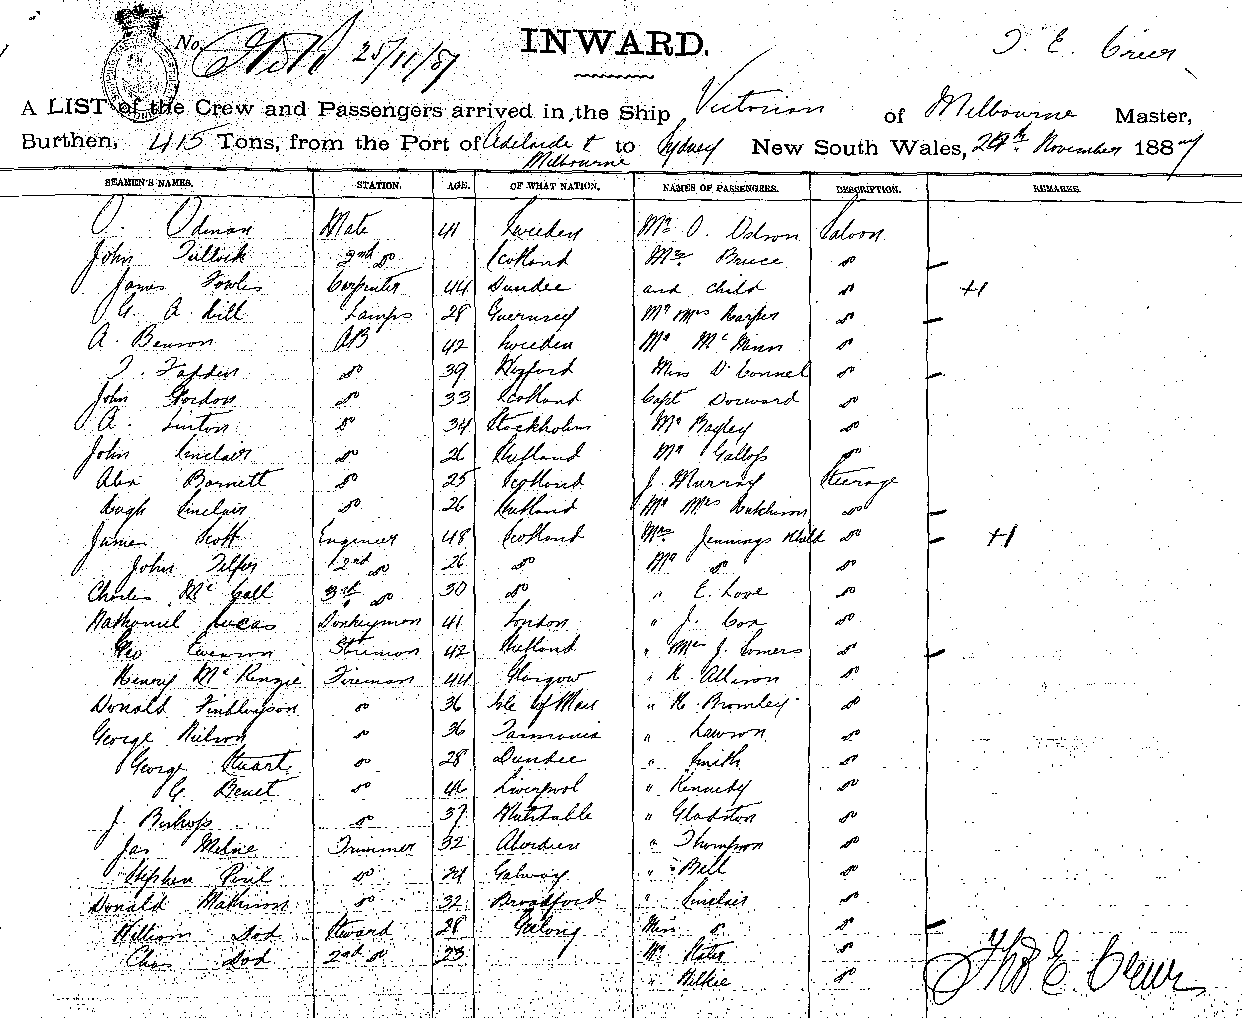 No. 25/11/87 INWARD. T. E. Creer
A LIST of the Crew and Passengers arrived in the Ship Victorian of Melbourne Master,
Burthen, 415 Tons, from the Port of Adelaide & Melbourne to Sydney New South Wales, 24th November 1887
SEAMEN'S NAMES. STATION. AGE. OF WHAT NATION. NAMES OF PASSENGERS. DESCRIPTION. REMARKS.
O. Odman Mate 41 Sweden Mr O. Saloon
John Tullock 2nd do Scotland Mrs Bruce do
James Fowles Carpenter 44 Dundee and child do
G. A. Hill Lamps 28 Guernsey Mr Mrs Harper do
A. Benson AB 42 Sweden Mr do
T. do 39 Miss O'Connel do
John Gordon do 33 Scotland Capt Dorward do
A. Linton do 34 Stockholm Mr Bagley do
John Sinclair do 26 Shetland Mr Gallop do
Alex Barnett do 25 Scotland J. Murray Steerage
Hugh Sinclair do 26 Shetland Mr Mrs Hutchinson do
James Scott Engineer 48 Scotland Mrs Jennings & child do
John Telfer 2nd do 26 do Mr do do
Charles McCall 3rd do 30 do " E. Love do
Nathaniel Lucas Donkeyman 41 London " J. Cox do
Geo Evenson Storeman 42 Shetland " Mrs J. Somers do
Henry McKenzie Fireman 44 Glasgow " H. Allison do
Donald Finlayson do 36 Isle of Man " H. Bromley do
George Neilson do 36 Tasmania " Lawson do
George Stuart do 28 Dundee " Smith do
G. Benet do 46 Liverpool " Kennedy do
J. Bishop do 37 Whitstable " Gladston do
Jas Milne Trimmer 32 Aberdeen " Thompson do
Stephen do 24 Galway " Bell do
Donald Mathison do 32 Broadford " Sinclair do
William Dod Steward 28 Geelong Miss do do
Chas Dod 2nd do 23 Mr Slater do
" Wilkie do
Thos E. Creer